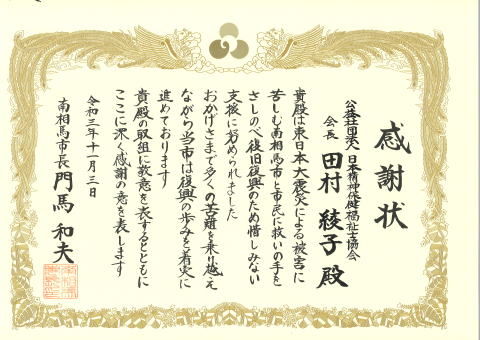 感謝状
公益社団法人 日本精神保健福祉士協会
会長 田村 綾子 殿
貴殿は東日本大震災による被害に
苦しむ南相馬市と市民に救いの手を
さしのべ復旧復興のため惜しみない
支援に努められました
おかげさまで多くの苦難を乗り越え
ながら当市は復興の歩みを着実に
進めております
貴殿の取組に敬意を表するとともに
ここに深く感謝の意を表します
令和三年十一月三日
南相馬市長 門馬 和夫